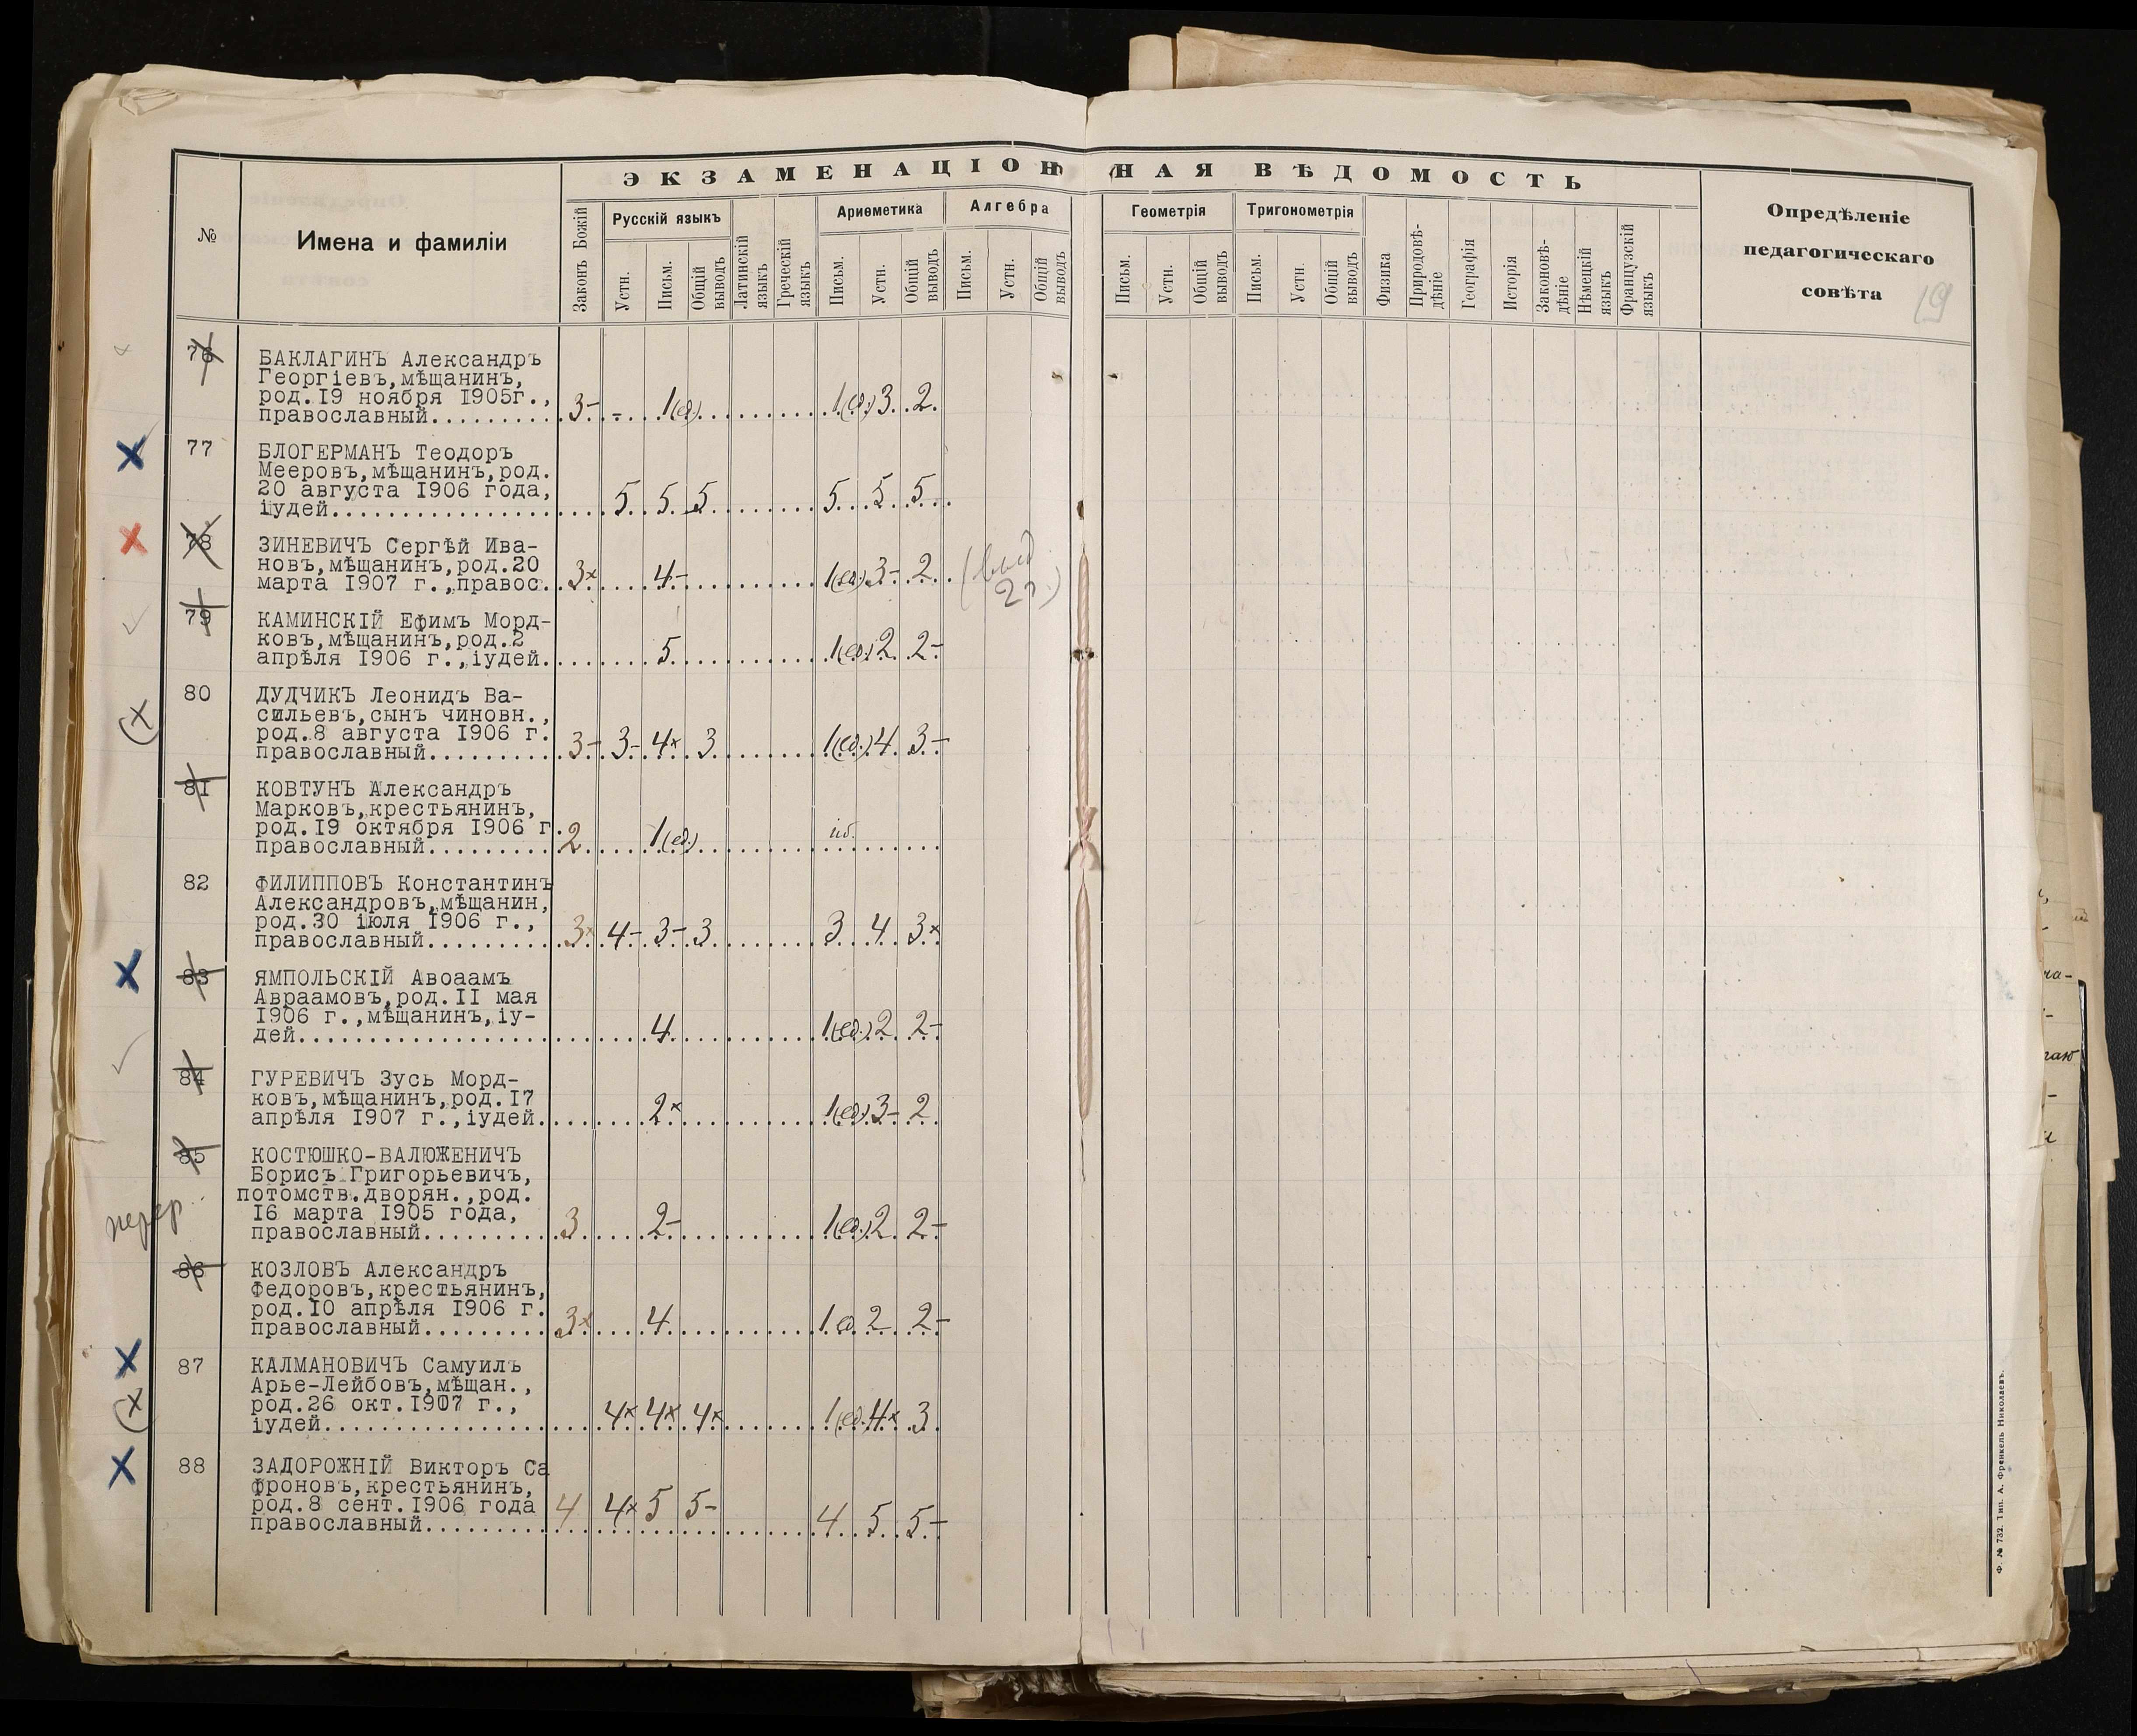 ЭКЗАМЕНАЦІОННАЯ ВѢДОМОСТЬ
№
Имена и фамиліи
Законъ Божій
Русскій языкъ
Устн.
Письм.
Общій выводъ
Латинскій языкъ
Греческій языкъ
Ариѳметика
Письм.
Устн.
Общій выводъ
Алгебра
Письм.
Устн.
Общій выводъ
Геометрія
Письм.
Устн.
Общій выводъ
Тригонометрія
Письм.
Устн.
Общій выводъ
Физика
Природовѣ-
дѣніе
Географія
Исторія
Законовѣ-
дѣніе
Нѣмецкій языкъ
Французскій языкъ
Опредѣленіе
педагогическаго
совѣта
19
76 БАКЛАГИНЪ Александръ
Георгіевъ,мѣщанинъ,
род.I9 ноября I905г.,
православный.......... 3- - 1(ед.) 1(ед.) 3 2
77 БЛОГЕРМАНЪ Теодоръ
Мееровъ,мѣщанинъ,род.
20 августа I906 года,
іудей................ 5 5 5 5 5 5
78 ЗИНЕВИЧЪ Сергѣй Ива-
новъ,мѣщанинъ,род.20
марта I907 г.,правос. 3× 4- 1(ед.) 3- 2
79 КАМИНСКІЙ Ефимъ Морд-
ковъ,мѣщанинъ,род.2
апрѣля I906 г.,іудей. 5 1(ед.) 2 2-
80 ДУДЧИКЪ Леонидъ Ва-
сильевъ,сынъ чиновн.,
род.8 августа I906 г.
православный......... 3- 3- 4× 3 1(ед.) 4 3-
81 КОВТУНЪ Александръ
Марковъ,крестьянинъ,
род.I9 октября I906 г.
православный......... 2 1(ед.)
82 ФИЛИППОВЪ Константинъ
Александровъ,мѣщанин,
род.30 іюля I906 г.,
православный......... 3× 4- 3- 3 3 4 3×
83 ЯМПОЛЬСКІЙ Авоаамъ
Авраамовъ,род.II мая
I906 г.,мѣщанинъ,іу-
дей.................. 4 1(ед.) 2 2-
84 ГУРЕВИЧЪ Зусь Морд-
ковъ,мѣщанинъ,род.I7
апрѣля I907 г.,іудей. 2× 1(ед.) 3- 2
85 КОСТЮШКО-ВАЛЮЖЕНИЧЪ
Борисъ Григорьевичъ,
потомств.дворян.,род.
I6 марта I905 года,
православный......... 3 2- 1(ед.) 2 2-
86 КОЗЛОВЪ Александръ
Федоровъ,крестьянинъ,
род.I0 апрѣля I906 г.
православный......... 3× 4 1 ед. 2 2-
87 КАЛМАНОВИЧЪ Самуилъ
Арье-Лейбовъ,мѣщан.,
род.26 окт.I907 г.,
іудей................ 4× 4× 4× 1(ед.) 4× 3
88 ЗАДОРОЖНІЙ Викторъ Са
фроновъ,крестьянинъ,
род.8 сент.I906 года
православный......... 4 4× 5 5- 4 5 5-
Ф. № 732. Тип. А. Френкель Николаевъ.